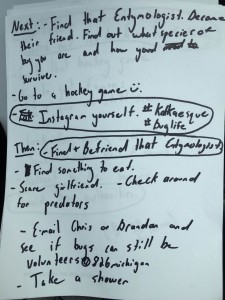 Next:- Find that Entymologist. Become
their friend. Find out what species of
bug you are and how you need to
survive.
- Go to a hockey game ü.
- Instagram yourself. # Kafkaesque
# buglife
Then: - Find & Befriend that Entymologist
- Find something to eat.
- Scare girlfriend. - Check around
for predators
- E-mail Chris or Brandan and
see if bugs can still be
volunteers @ 826michigan
- Take a shower